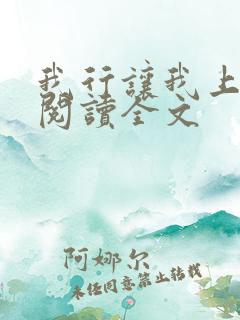 我行讓我上
閱讀全文
阿娜尔
未经同意禁止转载